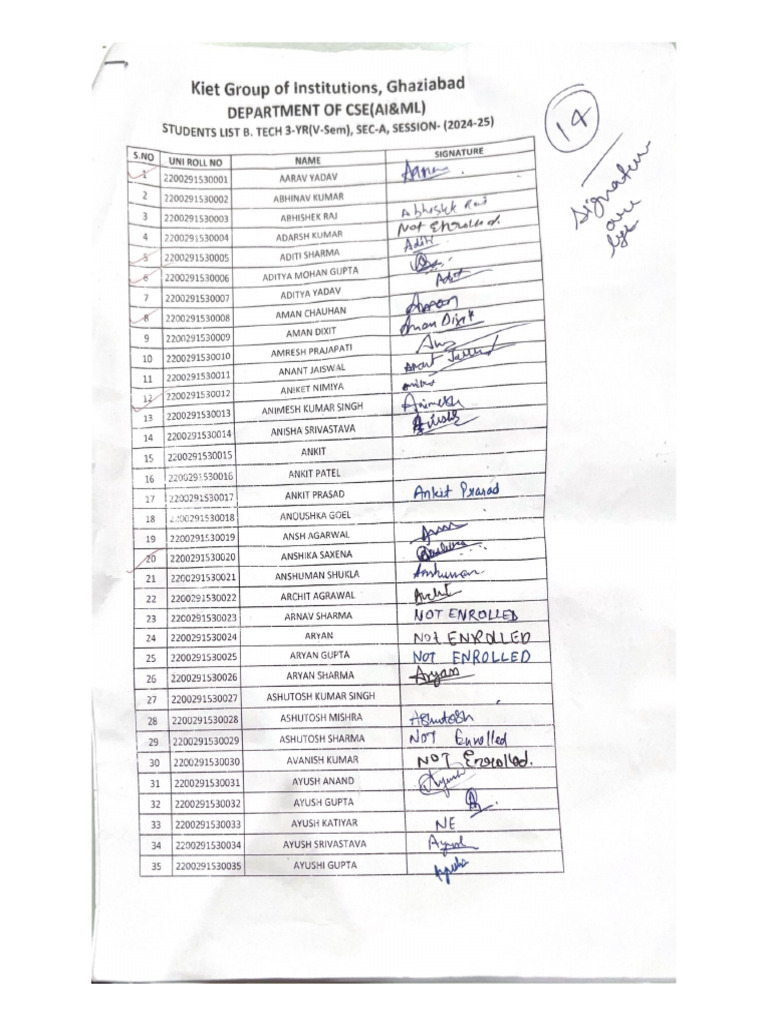 Kiet Group of Institutions, Ghaziabad
DEPARTMENT OF CSE(AI&ML)
STUDENTS LIST B. TECH 3-YR(V-Sem), SEC-A, SESSION- (2024-25)
14
Signature
are
S.NO UNI ROLL NO NAME SIGNATURE
1 2200291530001 AARAV YADAV
2 2200291530002 ABHINAV KUMAR
3 2200291530003 ABHISHEK RAJ Abhishek Raj
4 2200291530004 ADARSH KUMAR Not Enrolled.
5 2200291530005 ADITI SHARMA Aditi
6 2200291530006 ADITYA MOHAN GUPTA
7 2200291530007 ADITYA YADAV
8 2200291530008 AMAN CHAUHAN Aman
9 2200291530009 AMAN DIXIT Aman Dixit
10 2200291530010 AMRESH PRAJAPATI
11 2200291530011 ANANT JAISWAL Anant
12 2200291530012 ANIKET NIMIYA
13 2200291530013 ANIMESH KUMAR SINGH Animesh
14 2200291530014 ANISHA SRIVASTAVA
15 2200291530015 ANKIT
16 2200291530016 ANKIT PATEL
17 2200291530017 ANKIT PRASAD Ankit Prasad
18 2200291530018 ANOUSHKA GOEL
19 2200291530019 ANSH AGARWAL
20 2200291530020 ANSHIKA SAXENA
21 2200291530021 ANSHUMAN SHUKLA Anshuman
22 2200291530022 ARCHIT AGRAWAL Archit
23 2200291530023 ARNAV SHARMA NOT ENROLLED
24 2200291530024 ARYAN NOt ENROLLED
25 2200291530025 ARYAN GUPTA NOT ENROLLED
26 2200291530026 ARYAN SHARMA Aryan
27 2200291530027 ASHUTOSH KUMAR SINGH
28 2200291530028 ASHUTOSH MISHRA Ashutosh
29 2200291530029 ASHUTOSH SHARMA NOT Enrolled
30 2200291530030 AVANISH KUMAR NOT Enrolled.
31 2200291530031 AYUSH ANAND Ayush
32 2200291530032 AYUSH GUPTA
33 2200291530033 AYUSH KATIYAR NE
34 2200291530034 AYUSH SRIVASTAVA Ayush
35 2200291530035 AYUSHI GUPTA Ayushi